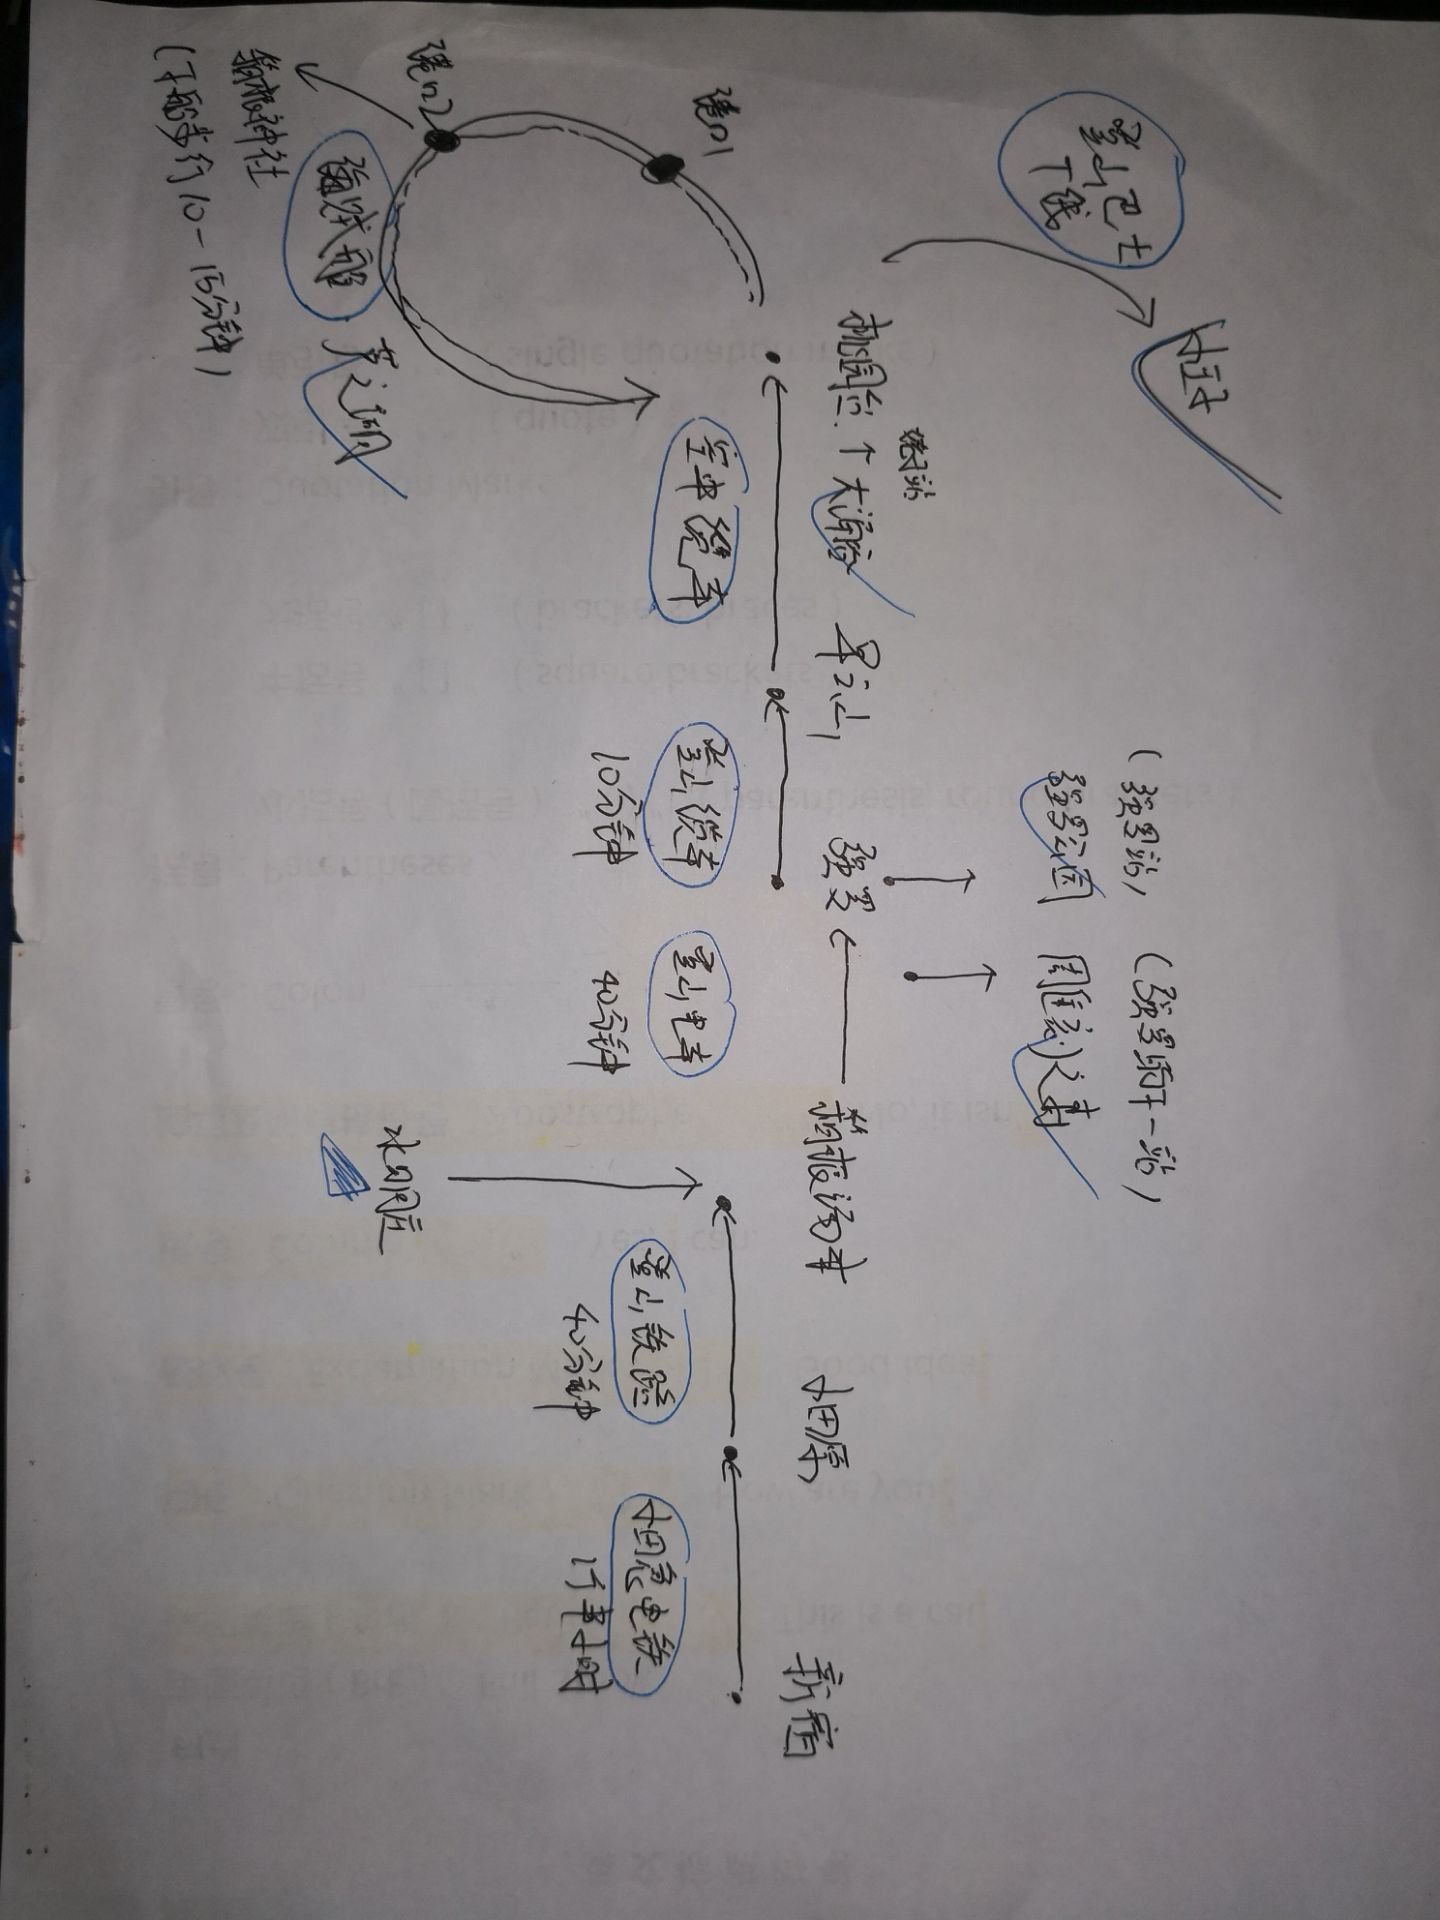 登山巴士
T线
小王子
(强罗站)
(强罗前一站)
强罗公园
雕刻之森
桃园台
大涌谷
早云山
强罗
箱根汤本
小田原
新宿
港口1
空中缆车
登山缆车
10分钟
登山电车
40分钟
登山铁路
40分钟
小田急电铁
1个半小时
港口2
海贼船
芦之湖
箱根神社
(下船步行10-15分钟)